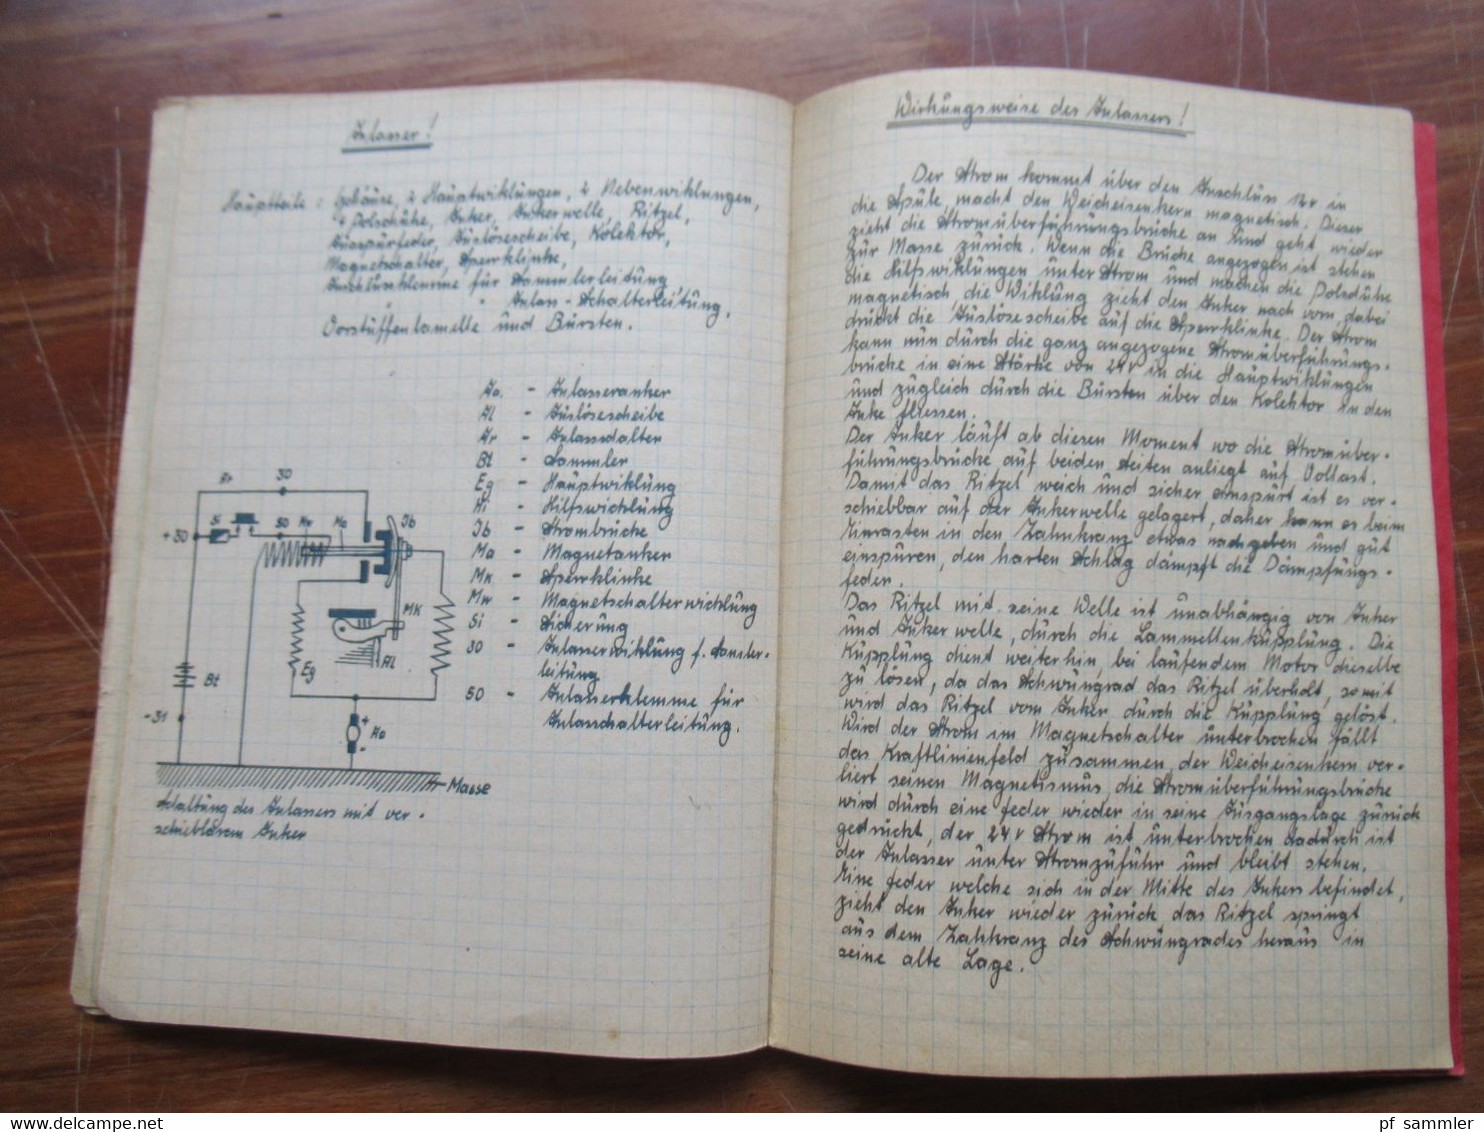 Anlasser!
Hauptteile: Gehäuse, 2 Hauptwiklungen, 2 Nebenwiklungen,
4 Polschühe, Anker, Ankerwelle, Ritzel,
Ausspürfeder, Auslösescheibe, Kolektor,
Magnetschalter, Sperrklinke,
Anschlüssklemme für Sammlerleitung
" " Anlass-Schalterleitung,
Vorstüffenlamelle und Bürsten.
Aa. - Anlasseranker
Al - Auslösescheibe
Ar - Anlassschalter
Bt - Sammler
Eg - Hauptwiklung
Hi - Hilfswicklung
Jb - Strombrücke
Ma - Magnetanker
Mk - Sperrklinke
Mw - Magnetschalterwicklung
Si - Sicherung
30 - Anlasserwiklung f. Samler-
leitung
50 - Anlasserklemme für
Anlasschalterleitung.
Ar 30
+30 Si 50 Mw Ma Jb
MK
Al
Eg
Bt
-31
+ Aa
-
Masse
Schaltung des Anlassers mit ver-
schiebbarem Anker
Wirkungsweise des Anlassers!
Der Strom kommt über den Anschluss in
die Spule, macht den Weicheisenkern magnetisch. Dieser
zieht die Stromüberführungsbrücke an und geht wieder
zur Masse zurück. Wenn die Brücke angezogen ist stehen
die Hilfswiklungen unter Strom und machen die Polschühe
magnetisch die Wiklung zieht den Anker nach vorn, dabei
drückt die Auslösescheibe auf die Sperrklinke. Der Strom
kann nun durch die ganz angezogene Stromüberführungs-
brücke in eine Stärke von 24V in die Hauptwiklungen
und zugleich durch die Bürsten über den Kolektor in den
Anke fliessen.
Der Anker läuft ab diesen Moment wo die Stromüber-
führungsbrücke auf beiden Seiten anliegt auf Vollast.
Damit das Ritzel weich und sicher einspurt ist es ver-
schiebbar auf der Ankerwelle gelagert, daher kann es beim
Einrasten in den Zahnkranz etwas nachgeben und gut
einspuren, den harten Schlag dämpft die Dämpfungs-
feder.
Das Ritzel mit seine Welle ist unabhängig von Anker
und Ankerwelle, durch die Lammellenkupplung. Die
Kupplung dient weiterhin, bei laufendem Motor dieselbe
zu lösen, da das Schwungrad das Ritzel überholt, somit
wird das Ritzel vom Anker durch die Kupplung gelöst.
Wird der Strom im Magnetschalter unterbrochen fällt
das Kraftlinienfeld zusammen, der Weicheisenkern ver-
liert seinen Magnetismus die Stromüberführungsbrücke
wird durch eine feder wieder in seine Ausgangslage zurück
gedrückt, der 24V Strom ist unterbrochen dadurch ist
der Anlasser unter Stromzufuhr und bleibt stehen.
Eine feder welche sich in der Mitte des Ankers befindet,
zieht den Anker wieder zurück das Ritzel springt
aus dem Zahkranz des Schwungrades heraus in
seine alte Lage.
www.delcampe.net
pf_sammler